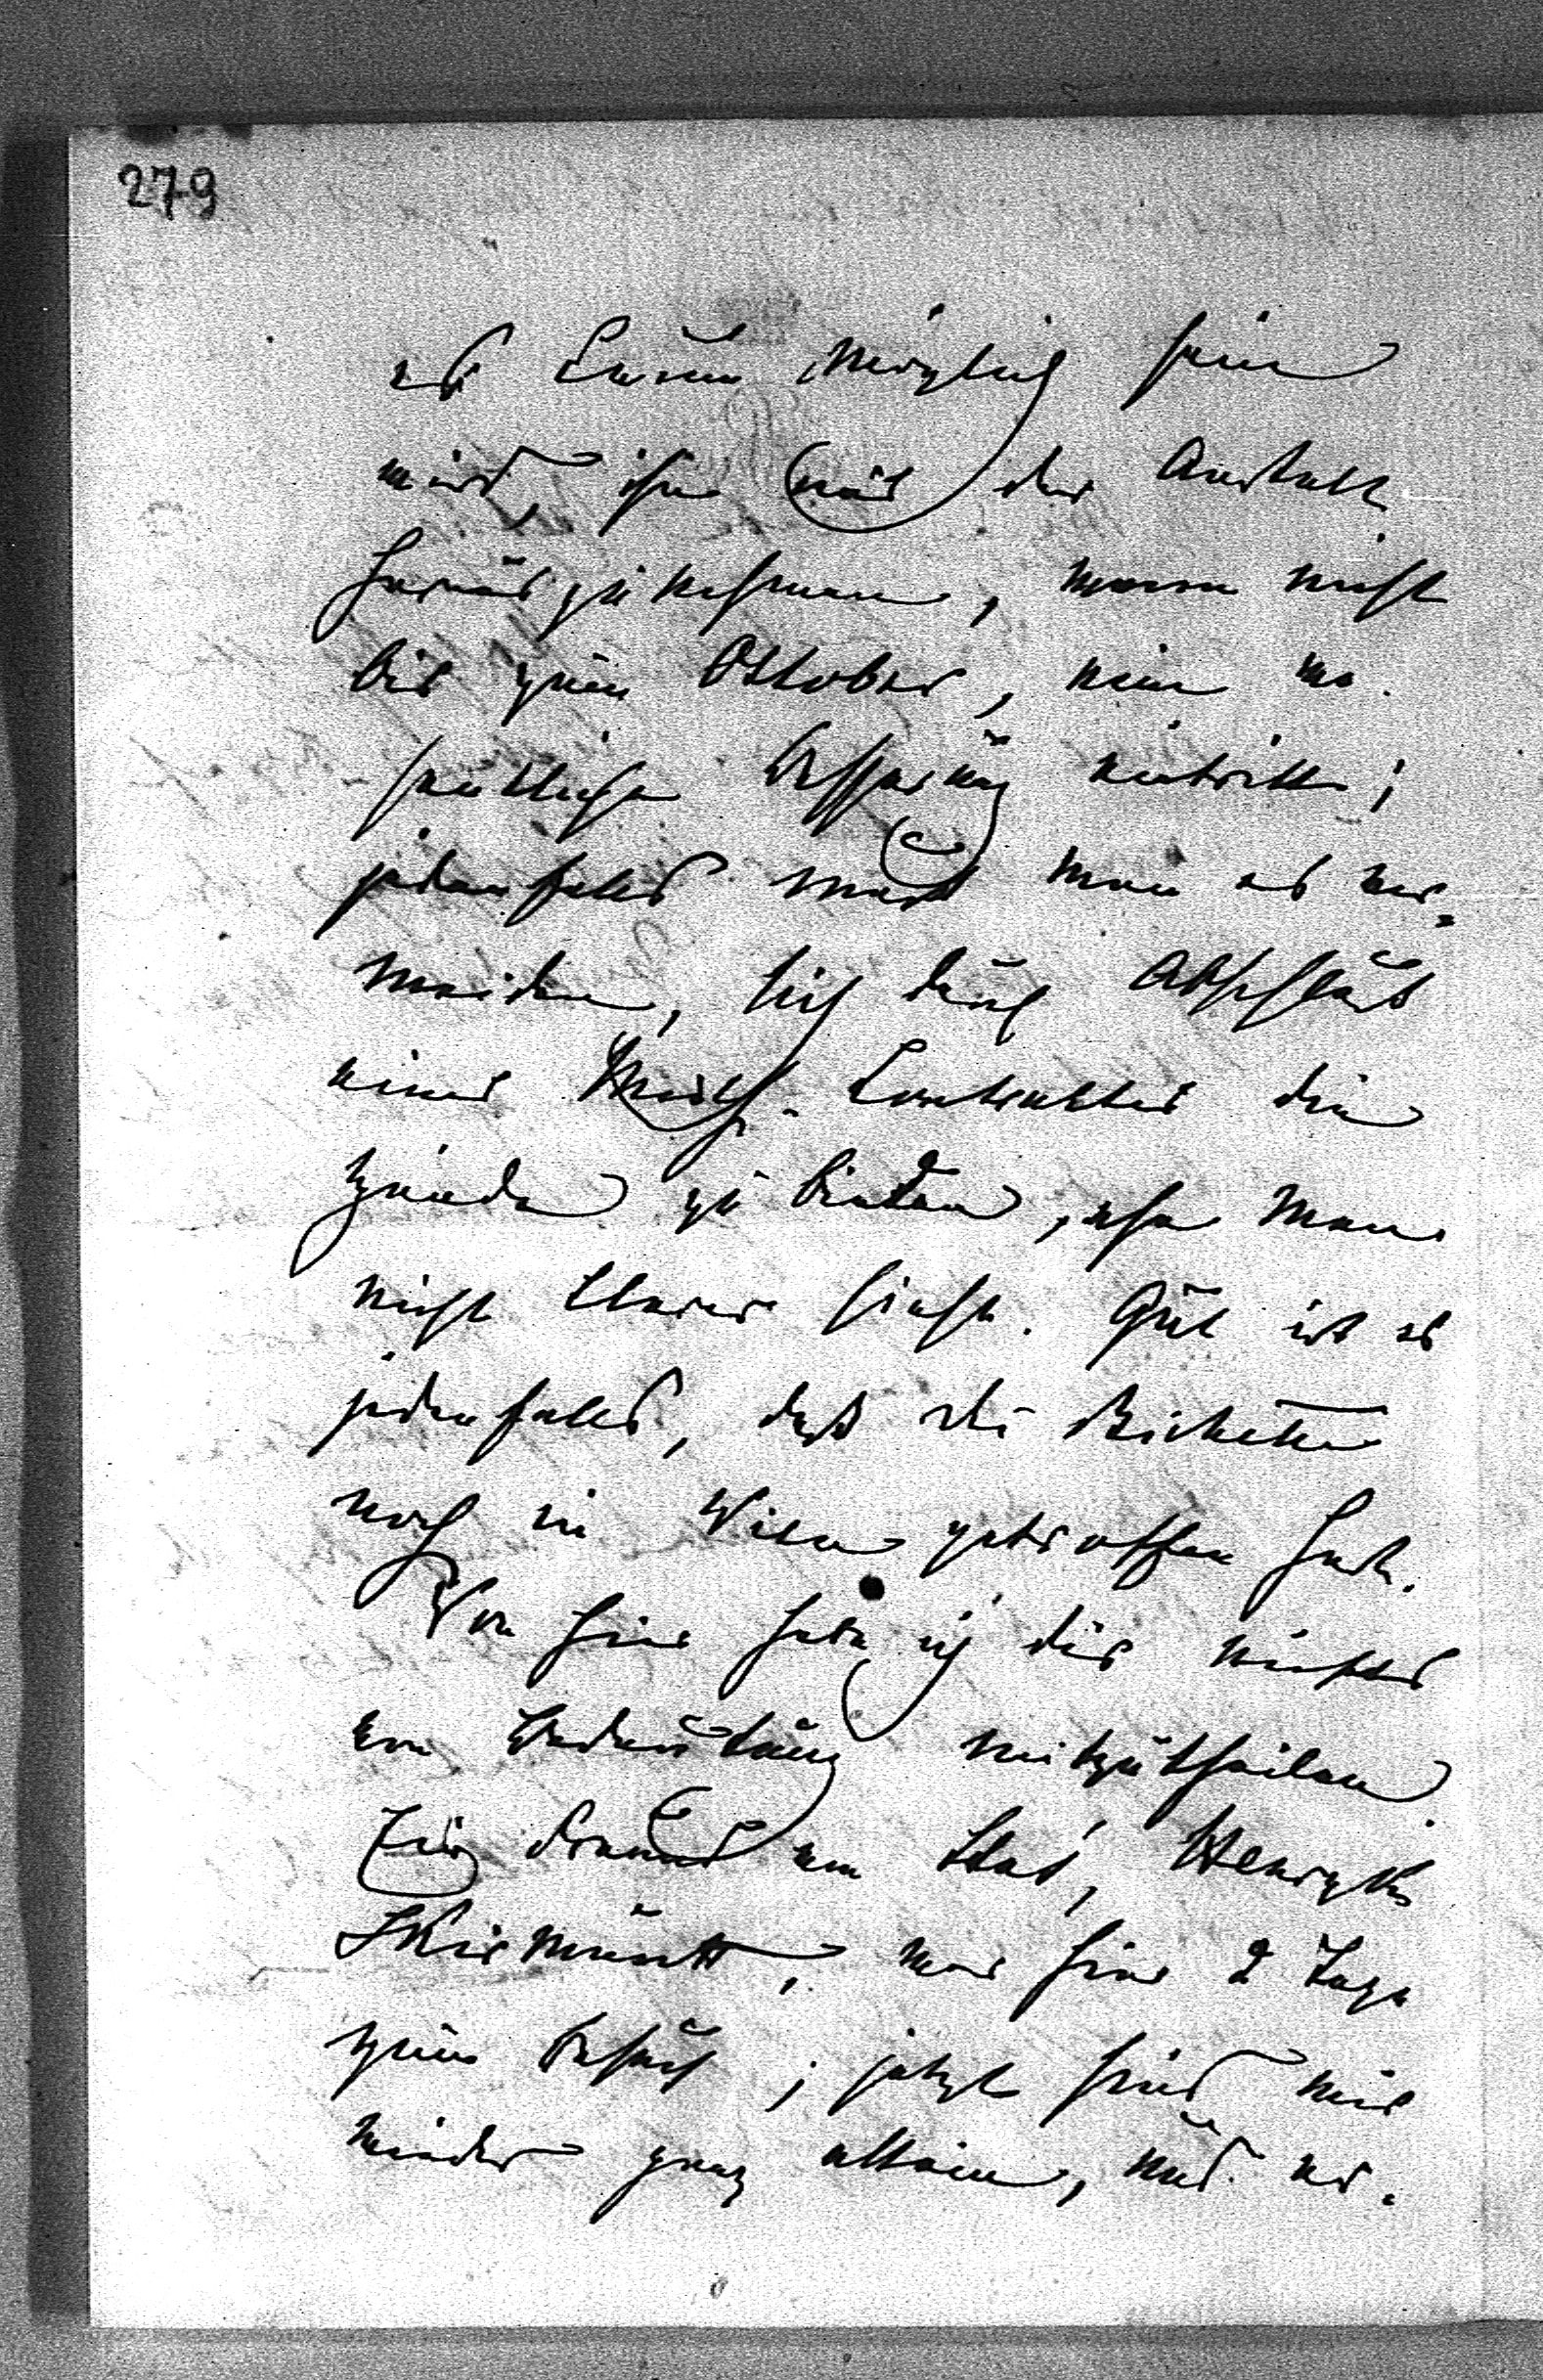 279
es kaum möglich sein
wird, ihn aus der Anstalt
herauszunehmen, wenn nicht
bis zum Oktober, eine we-
sentliche Besserung eintritt;
jedenfalls muß man es ver-
meiden, sich durch Abschluß
eines Mieth-Contraktes die
Hände zu binden, ehe man
nicht klarer sieht. Gut ist es
jedenfalls, daß
noch in Wien getroffen hast.
Von hier habe ich dir nichts
von Bedeutung mitzutheilen.
Ein Freund von
Skirmuntt, war hier 2 Tage
zum Besuch; jetzt sind wir
wieder ganz allein, und er-